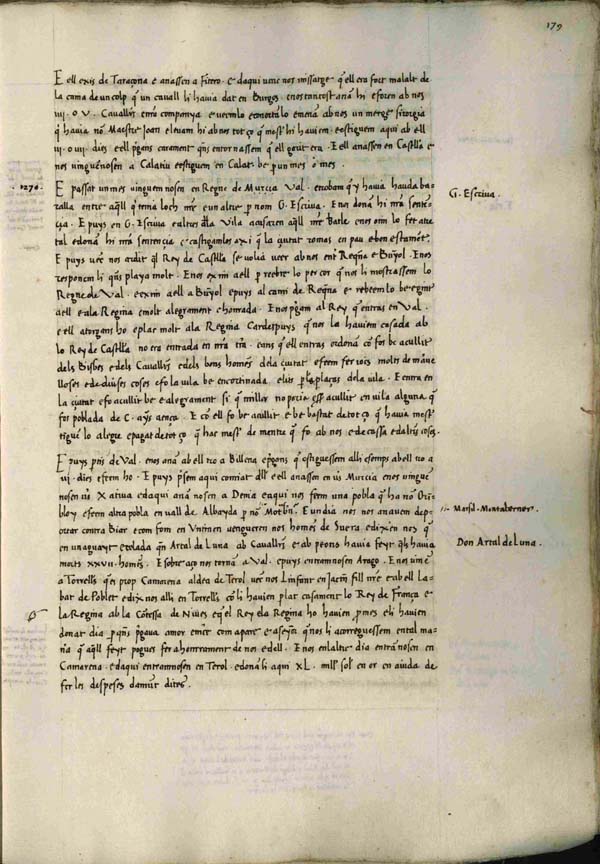 179
E ell exis de Taraçona e anassen a Fitero. e daqui vench nos missatge q̃ ell era fort malalt de
la cama de un colp q̃ un cavall li havia dat en Burges. e nos tantost anã hi e forẽ ab nos
IIII. o V. Cavallers companya e
q̃ havia nõ Maestre Joan e levam hi ab nos tot ço q̃ mest hi haviem. e estiguem aqui ab ell
III. o IIII. dies e ell pgans carament q̃ns entornassem q̃ ell gorit era. E ell anassen en Castella e
nos vinguẽ nosen a Calatiu e estiguem en Calat. be p un mes o mes.
.1270.
E passat un mes vinguem nosen en Regne de Murcia Val. e trobam q̃ y havia hauda ba-
G. Escriva.
talla entre aq̃ll q̃ tenia loch e un altre p nom G. Escriva. E nos donã hi senten-
çia. E puys en G. Escriva e altres dla Vila acusaren aq̃ll Batle e nos oim lo fet atre
tal e donã hi sentencia e castigamlos axi q̃ la çiutat romas en pau e bon estamẽt.
E puys vẽc nos ardit q̃l Rey de Castella se volia veer ab nos ent Reqna e Buyol. E nos
responem li q̃ns playa molt. E nos exim a ell p reebir lo per ço q̃ nos li mostrassem lo
Regne de Val. e exim a ell a Buyol e puys al cami de Reqna e rebeem lo be e gint
a ell e a la Regina e molt alegrament e honrada. E nos pgam al Rey q̃ entras en Val.
e ell atorgans ho e plac molt a la Regina Car despuys q̃ nos la haviem casada ab
lo Rey de Castella no era entrada en tra. e ans q̃ ell entras ordenã co fos be acullit
dels Bisbes e dels Cavallers e dels bons homẽs dela çiutat e feem fer iocs molts de maravelloses
e de diuses coses e fo la vila be encortinada. e lus pla plaças dela vila. E entra en
la çiutat e fo acullit be e alegrament si q̃ millor no poria esser acullit en vila alguna q̃
fos poblada de C. ays aença. E cõ ell fo be acullit e be bastat de tot ço q̃ havia mest
tigue lo alegre e pagat de tot ço q̃ hac mest de mentre q̃ fo ab nos e de cassa e daltres coses.
E puys ptis de Val. e nos anã ab ell tro a Billena e pgans q̃ estiguessem alli ensemps ab ell tro a
VI. dies e feem ho. E puys psem aqui comiat dell e ell anassen en vers Murcia e nos vinguẽ
nosen a Xativa e daqui anã nosen a Denia e aqui nos feem una pobla q̃ ha nõ Orim-
Marsil. Montaberner
bloy e feem altra pobla en vall de Albayda p nõ Motbrn. E un dia nos nos anavem deportar
contra Biar e com fom en Untinen vengueren nos homẽs de Suera e dixen nos q̃
Don Artal de Luna.
en un aguayt e celada q̃n Artal de Luna ab Cavallers e ab peons havia feyt q̃ls havia
morts XXVII. homẽs. E sobre aço nos tornã a Val. e puys entramnosen Arago. E nos vimẽ
a Torrelles q̃ es prop Camarena aldea de Terol vec nos Linfant en Jacm fill nre e ab ell La-
bat de Poblet e dix nos alli en Torrelles cõ li havien plac casament lo Rey de França e
la Regina ab la Cõtessa de Nivers e q̃ el Rey e la Regina ho havien pmes e li havien
donat dia p q̃ns pgava amor e merce com a pare e a senyor q̃ nos li acorreguessem en tal ma-
nera q̃ aq̃ll feyt pogues fer a honrament de nos e dell. E nos en laltre dia entrã nosen en
Camarena. e daqui entramnosen en Terol. e donã li aqui XL. mill sols en or en aiuda de
fer les despeses damunt dites.